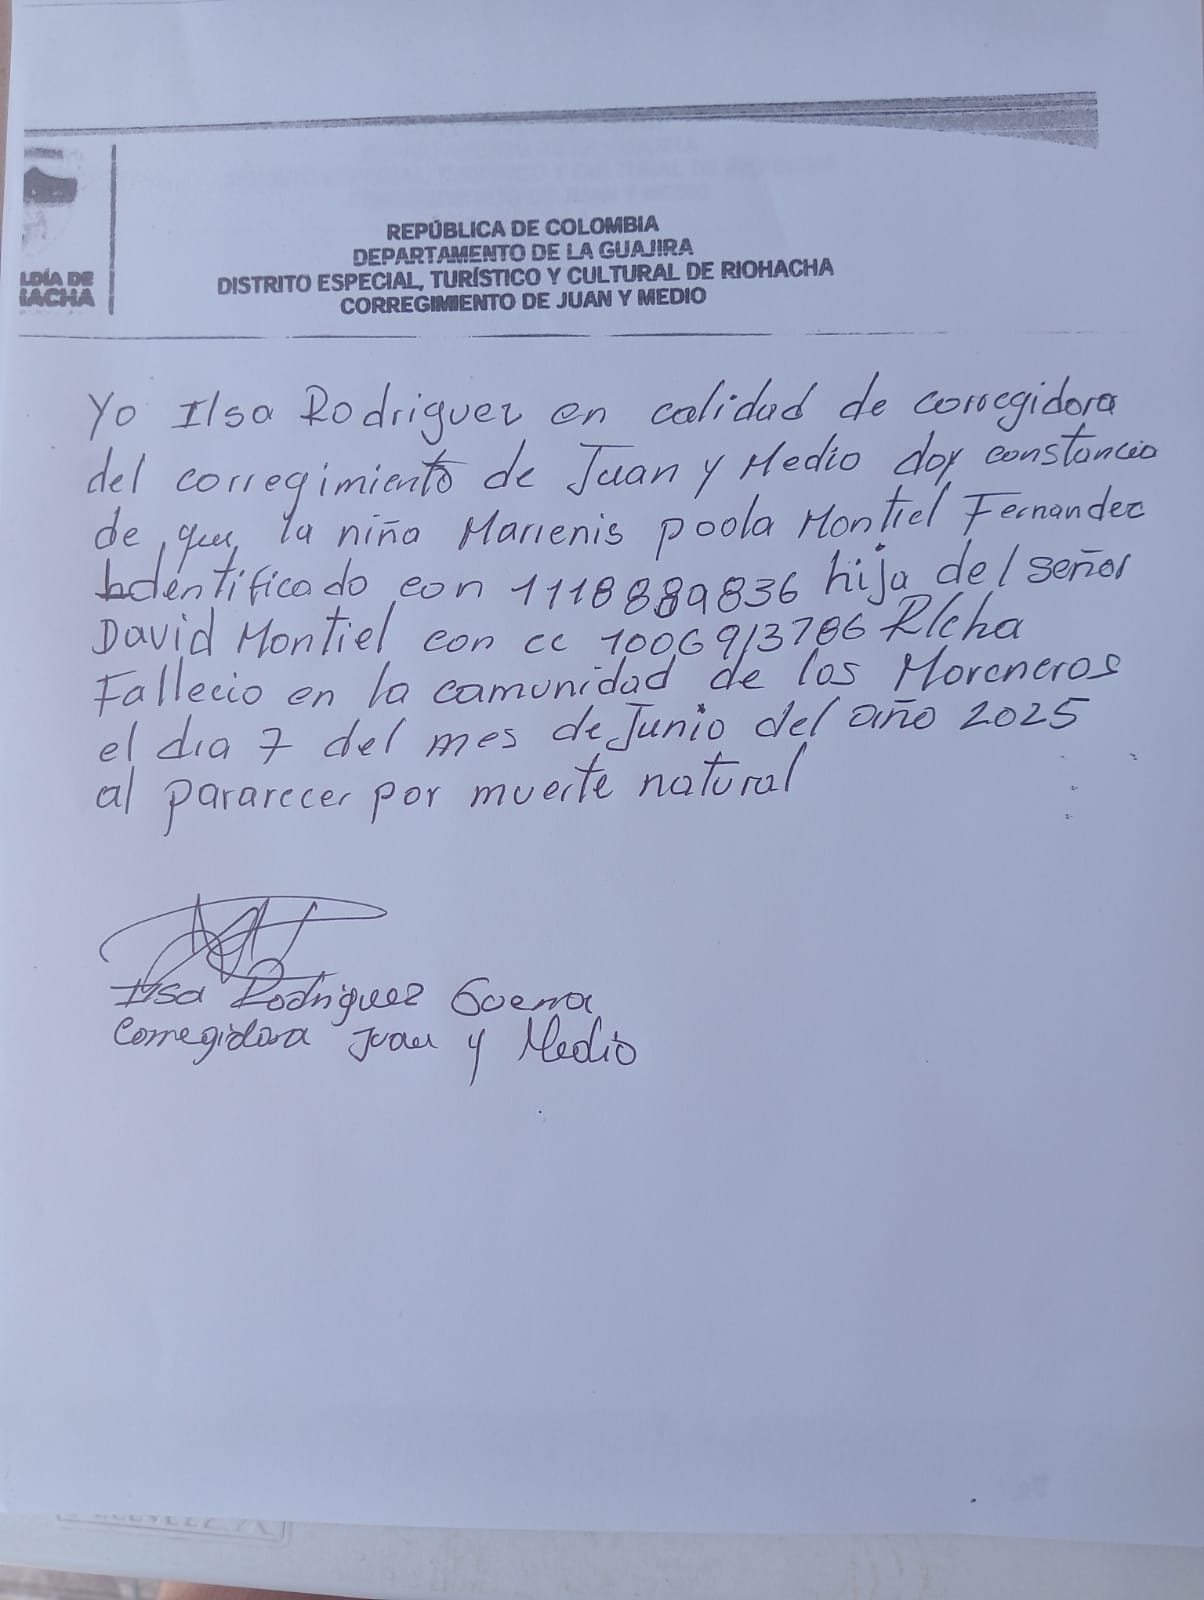 REPÚBLICA DE COLOMBIA
DEPARTAMENTO DE LA GUAJIRA
LDÍA DE
IACHA
DISTRITO ESPECIAL, TURÍSTICO Y CULTURAL DE RIOHACHA
CORREGIMIENTO DE JUAN Y MEDIO
Yo Ilsa Rodriguez en calidad de corregidora
del corregimiento de Juan y Medio doy constancia
de que la niña Marienis poola Montiel Fernandez
identificado con 1118889836 hija del señor
David Montiel con cc 1006913786 R/cha
Fallecio en la camunidad de los Moreneros
el dia 7 del mes de Junio del año 2025
al pararecer por muerte natural
Ilsa Rodriguez Guerra
Corregidora Juan y Medio